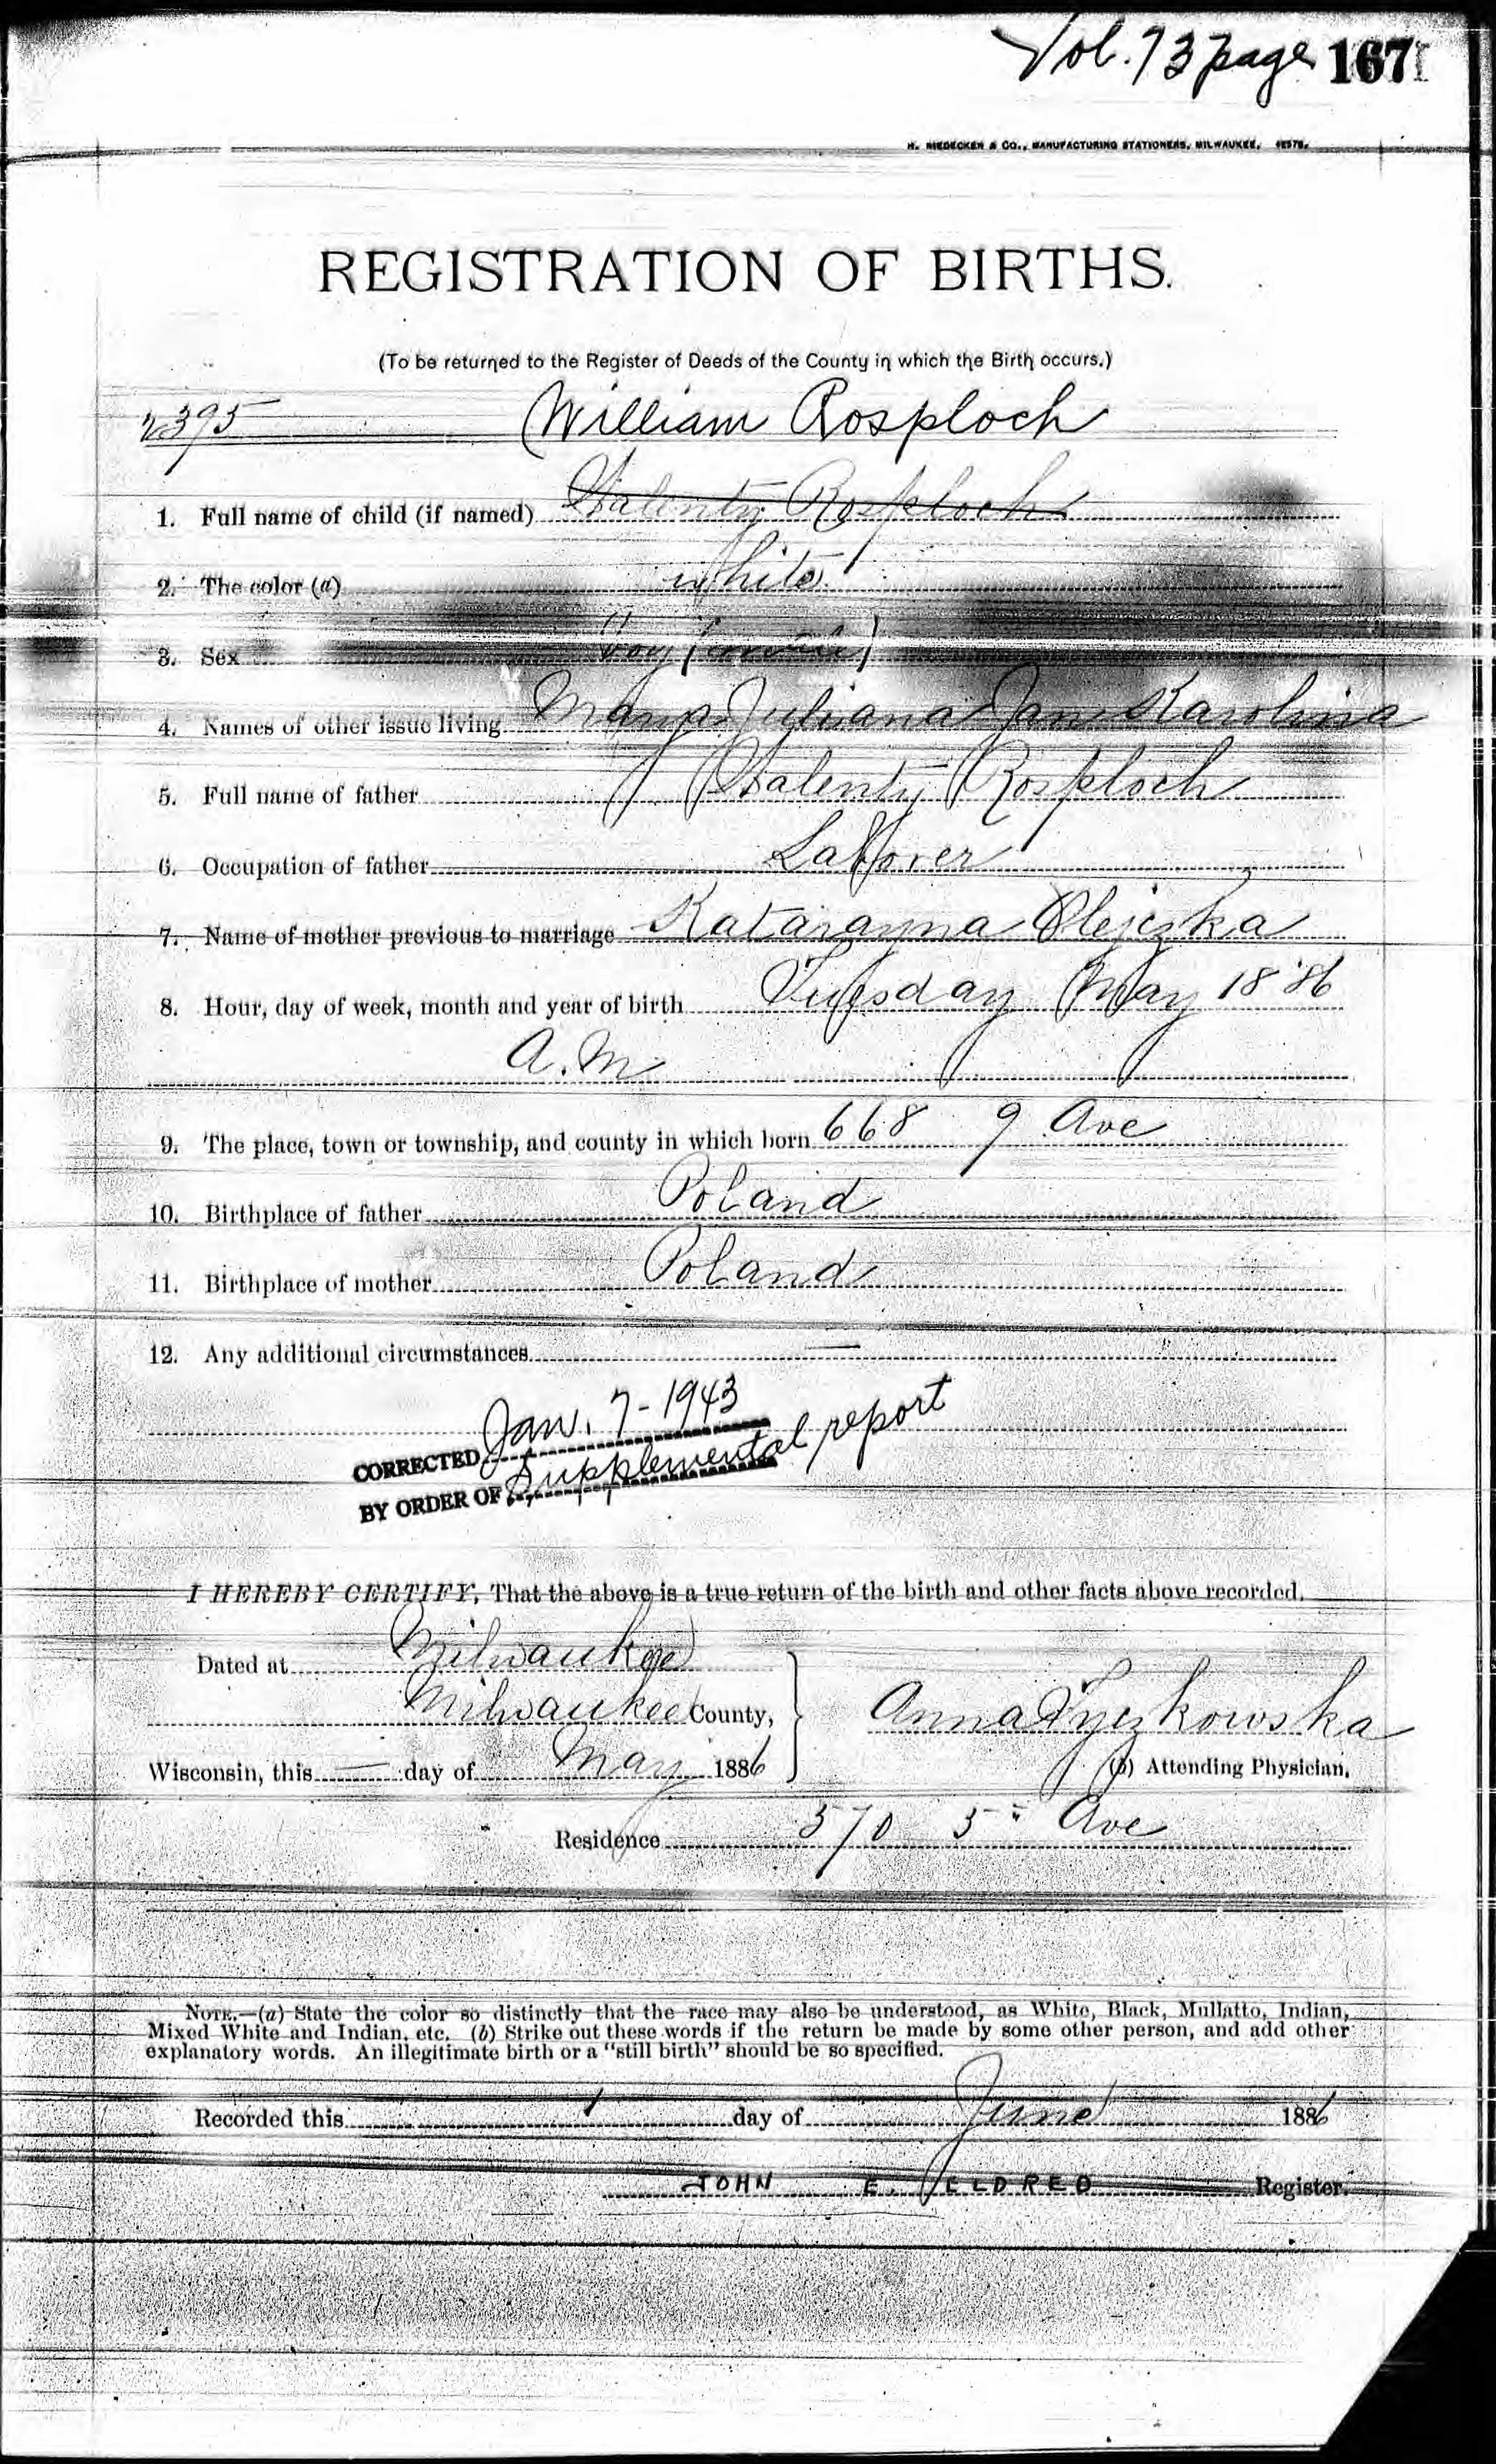 Vol. 73 page 167
H. NIEDECKEN & CO., MANUFACTURING STATIONERS, MILWAUKEE.
REGISTRATION OF BIRTHS.
(To be returned to the Register of Deeds of the County in which the Birth occurs.)
2395 William Rosploch
1. Full name of child (if named) Walenty Rosploch
2. The color (a) white
3. Sex boy (male)
4. Names of other issue living Marya Juliana Jan Karolina
5. Full name of father Walenty Rosploch
6. Occupation of father Laborer
7. Name of mother previous to marriage Katarayna Olejczka
8. Hour, day of week, month and year of birth Tuesday May 18 '86
A.M
9. The place, town or township, and county in which born 668 9 Ave
10. Birthplace of father Poland
11. Birthplace of mother Poland
12. Any additional circumstances —
CORRECTED Jan. 7-1943
BY ORDER OF Supplemental report
I HEREBY CERTIFY, That the above is a true return of the birth and other facts above recorded.
Dated at Milwaukee
Milwaukee County,
Anna
Wisconsin, this — day of May 1886
(b) Attending Physician.
Residence 570 5th Ave
NOTE.—(a) State the color so distinctly that the race may also be understood, as White, Black, Mullatto, Indian,
Mixed White and Indian, etc. (b) Strike out these words if the return be made by some other person, and add other
explanatory words. An illegitimate birth or a "still birth" should be so specified.
Recorded this 1 day of June 1886
JOHN E. ELDRED Register.